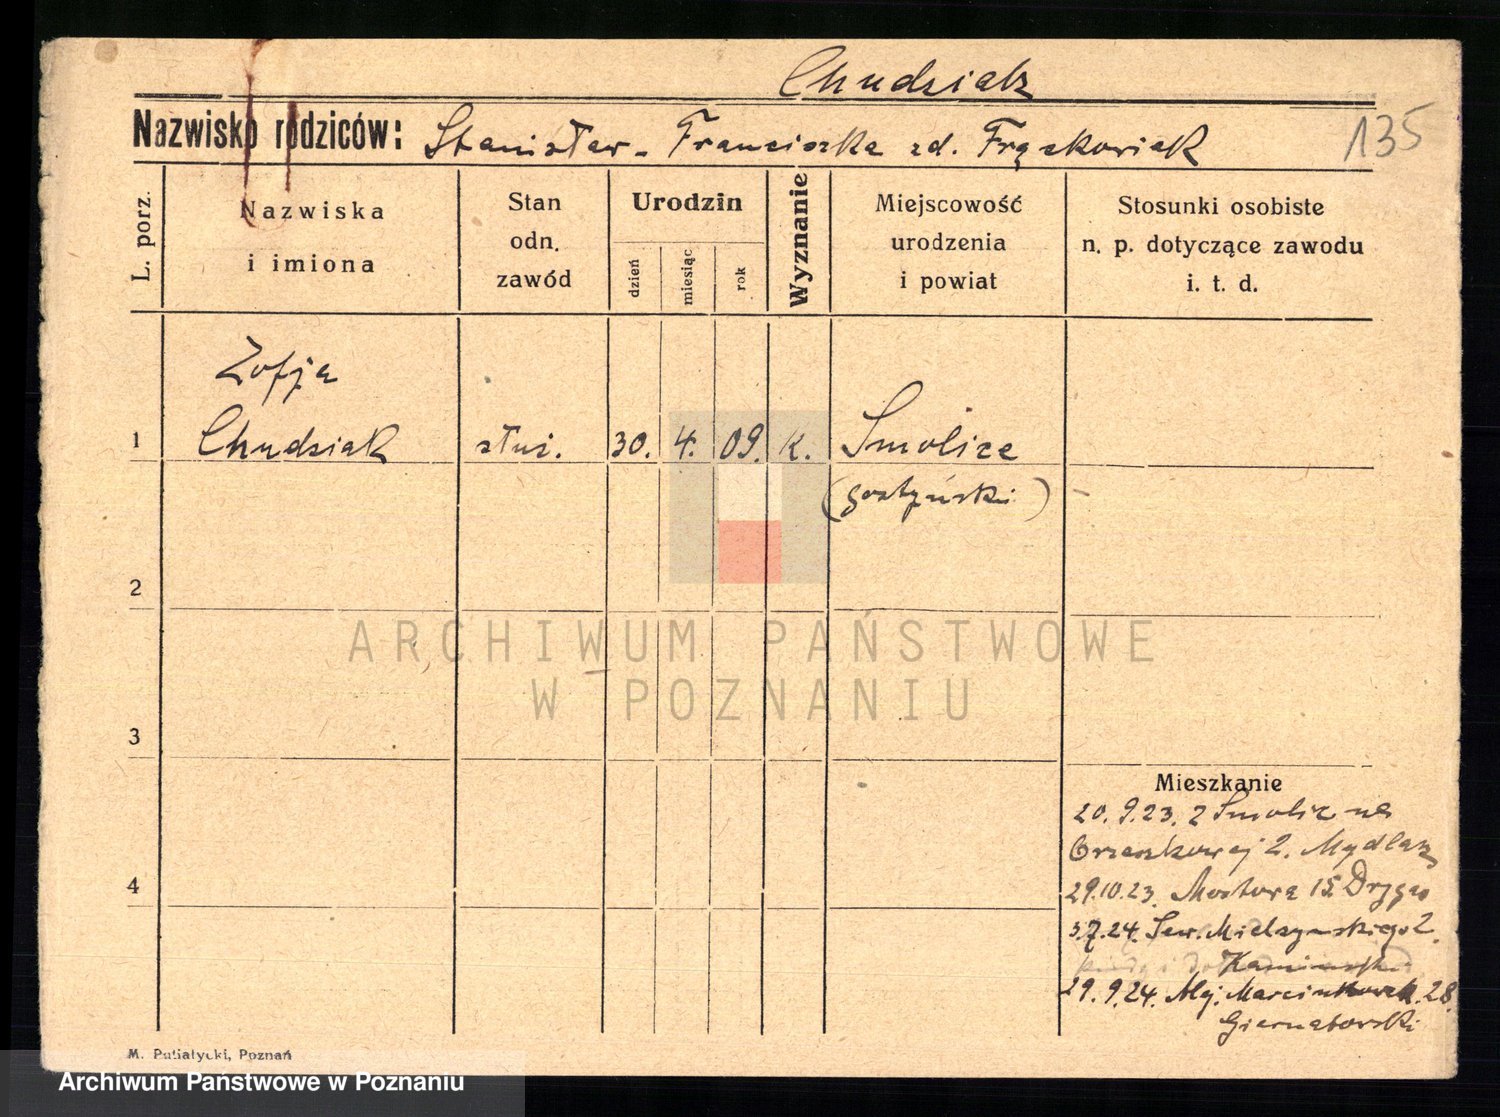 Chudziak
Nazwisko rodziców: Stanisław - Franciszka zd. Frąckowiak
135
L. porz.
Nazwiska
i imiona
Stan
odn.
zawód
Urodzin
dzień
miesiąc
rok
Wyznanie
Miejscowość
urodzenia
i powiat
Stosunki osobiste
n. p. dotyczące zawodu
i. t. d.
Zofja
1 Chudziak służ. 30. 4. 09. k. Smolice
(gostyński)
2
ARCHIWUM PAŃSTWOWE
W POZNANIU
3
Mieszkanie
20. 9.23. z Smolic na
Orzeszkowej 2. Mydlarz
4
29.10.23. Mostowa 15. Drygas
3.7.24. Sew. Mielżyńskiego 2.
Kamiński
29. 9.24. Alej. Marcinkowsk. 28
Giernatowski
M. Putiatycki, Poznań
Archiwum Państwowe w Poznaniu